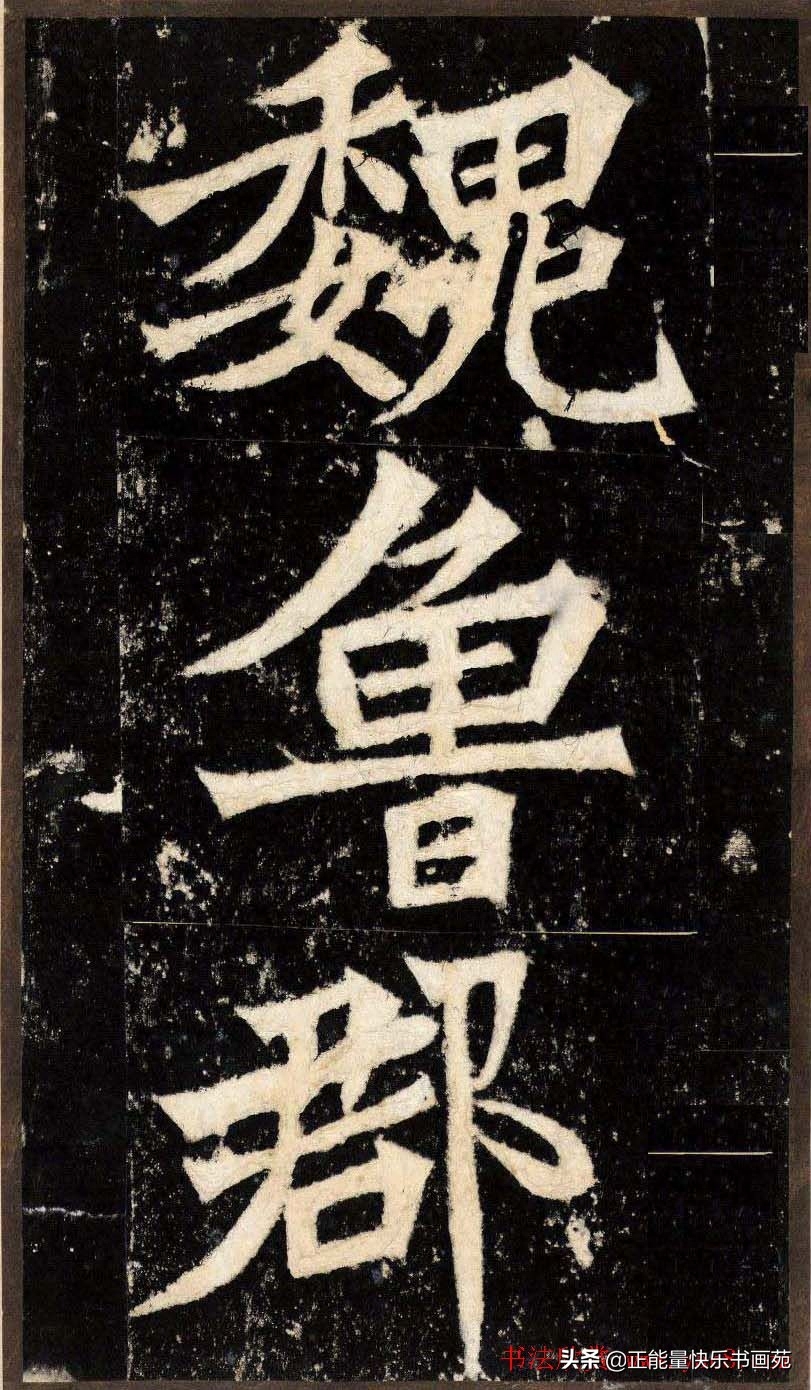 魏
魯
郡
头条 @正能量快乐书画苑